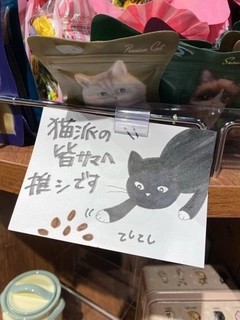 Persian Cat
猫派の
皆サマへ
推シです
てしてし